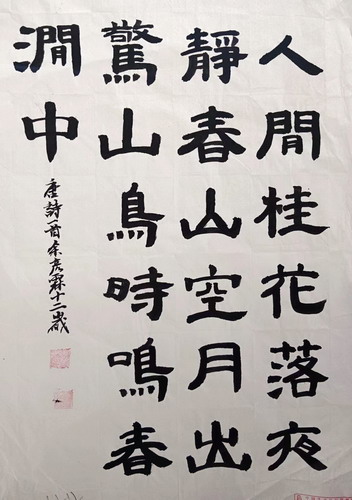 人閒桂花落夜
靜春山空月出
驚山鳥時鳴春
澗中
唐詩一首余彥霖十二歲